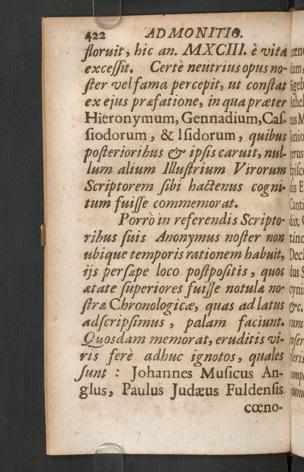 422 ADMONITIO.
floruit, hic an. MXCIII. è vitâ
excessit. Certè neutrius opus no-
ster vel fama percepit, ut constat
ex ejus præfatione, in qua præter
Hieronymum, Gennadium, Cas-
siodorum, & Isidorum, quibus
posterioribus & ipsis caruit, nul-
lum alium Illustrium Virorum
Scriptorem sibi hactenus cogni-
tum fuisse commemorat.
Porrò in referendis Scripto-
ribus suis Anonymus noster non
ubique temporis rationem habuit,
ijs persæpe loco postpositis, quos
ætate superiores fuisse notulæ no-
stræ Chronologicæ, quas ad latus
adscripsimus, palam faciunt.
Quosdam memorat, eruditis vi-
ris ferè adhuc ignotos, quales
sunt: Johannes Musicus An-
glus, Paulus Judæus Fuldensis
cœno-